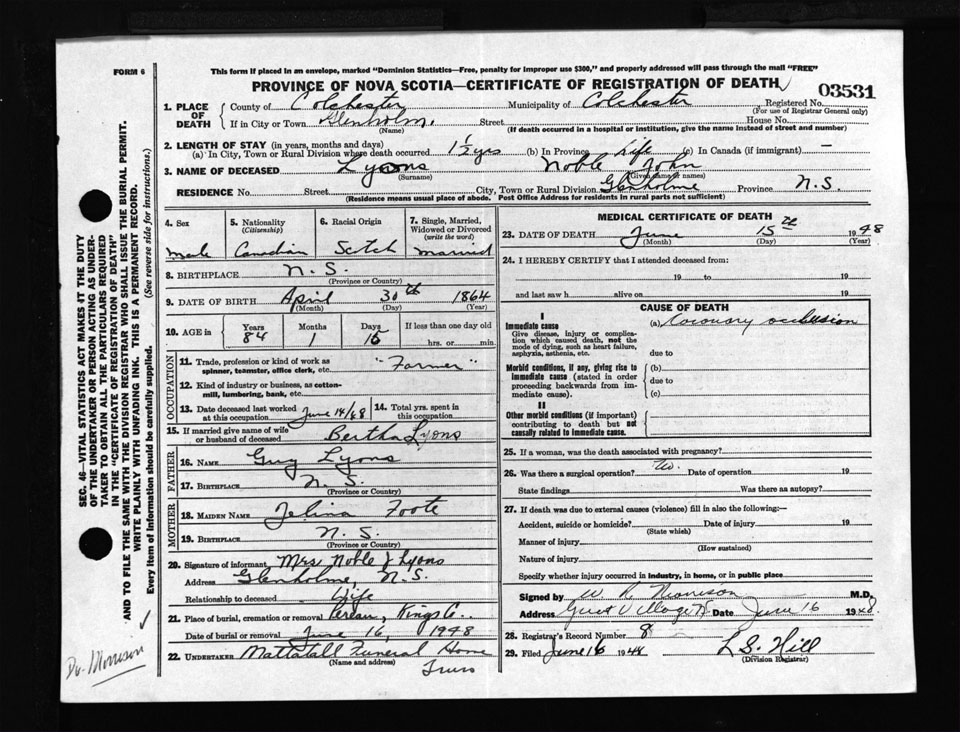 FORM 6
This form if placed in an envelope, marked "Dominion Statistics—Free, penalty for improper use $300," and properly addressed will pass through the mail "FREE"
PROVINCE OF NOVA SCOTIA—CERTIFICATE OF REGISTRATION OF DEATH
03531
1. PLACE OF DEATH
County of Colchester Municipality of Colchester Registered No.
(For use of Registrar General only)
If in City or Town Glenholm. Street House No.
(Name) (If death occurred in a hospital or institution, give the name instead of street and number)
2. LENGTH OF STAY (in years, months and days)
(a) In City, Town or Rural Division where death occurred 1 1/2 yrs (b) In Province Life (c) In Canada (if immigrant) —
3. NAME OF DECEASED Lyons Noble John
(Surname) (Given name or names)
RESIDENCE No. Street City, Town or Rural Division Glenholme Province N.S.
(Residence means usual place of abode. Post Office Address for residents in rural parts not sufficient)
4. Sex
Male
5. Nationality
(Citizenship)
Canadian
6. Racial Origin
Scotch
7. Single, Married, Widowed or Divorced
(write the word)
Married
8. BIRTHPLACE N.S.
(Province or Country)
9. DATE OF BIRTH April 30th 1864
(Month) (Day) (Year)
10. AGE in Years Months Days If less than one day old
84 1 15 hrs. or min.
OCCUPATION
11. Trade, profession or kind of work as spinner, teamster, office clerk, etc. "Farmer"
12. Kind of industry or business, as cotton-mill, lumbering, bank, etc.
13. Date deceased last worked at this occupation June 14/48
14. Total yrs. spent in this occupation
15. If married give name of wife or husband of deceased Bertha Lyons
FATHER
16. NAME Guy Lyons
17. BIRTHPLACE N.S.
(Province or Country)
MOTHER
18. MAIDEN NAME Foote
19. BIRTHPLACE N.S.
(Province or Country)
20. Signature of informant Mrs Noble J Lyons
Address Glenholme, N.S.
Relationship to deceased Wife
21. Place of burial, cremation or removal Pereau, Kings Co.
Date of burial or removal June 16, 1948
22. UNDERTAKER Mattatall Funeral Home
(Name and address)
Truro
MEDICAL CERTIFICATE OF DEATH
23. DATE OF DEATH June 15th 1948
(Month) (Day) (Year)
24. I HEREBY CERTIFY that I attended deceased from:
19 to 19
and last saw h alive on 19
CAUSE OF DEATH
I
Immediate cause (a) Coronary occlusion
Give disease, injury or complication which caused death, not the mode of dying, such as heart failure, asphyxia, asthenia, etc.
due to
Morbid conditions, if any, giving rise to immediate cause (stated in order proceeding backwards from immediate cause).
(b)
due to
(c)
II
Other morbid conditions (if important) contributing to death but not causally related to immediate cause.
25. If a woman, was the death associated with pregnancy?
26. Was there a surgical operation? No. Date of operation 19
State findings Was there an autopsy?
27. If death was due to external causes (violence) fill in also the following:—
Accident, suicide or homicide? Date of injury 19
(State which)
Manner of injury
(How sustained)
Nature of injury
Specify whether injury occurred in industry, in home, or in public place
Signed by W R Morrison M.D.
Address Great Village NS Date June 16 1948
28. Registrar's Record Number 8
29. Filed June 16 1948 L S. Hill
(Division Registrar)
SEC. 46—VITAL STATISTICS ACT MAKES IT THE DUTY
OF THE UNDERTAKER OR PERSON ACTING AS UNDER-
TAKER TO OBTAIN ALL THE PARTICULARS REQUIRED
IN THE "CERTIFICATE OF REGISTRATION OF DEATH"
AND TO FILE THE SAME WITH THE DIVISION REGISTRAR WHO SHALL ISSUE THE BURIAL PERMIT.
WRITE PLAINLY WITH UNFADING INK. THIS IS A PERMANENT RECORD.
Every item of information should be carefully supplied. (See reverse side for instructions.)
Dr. Morrison